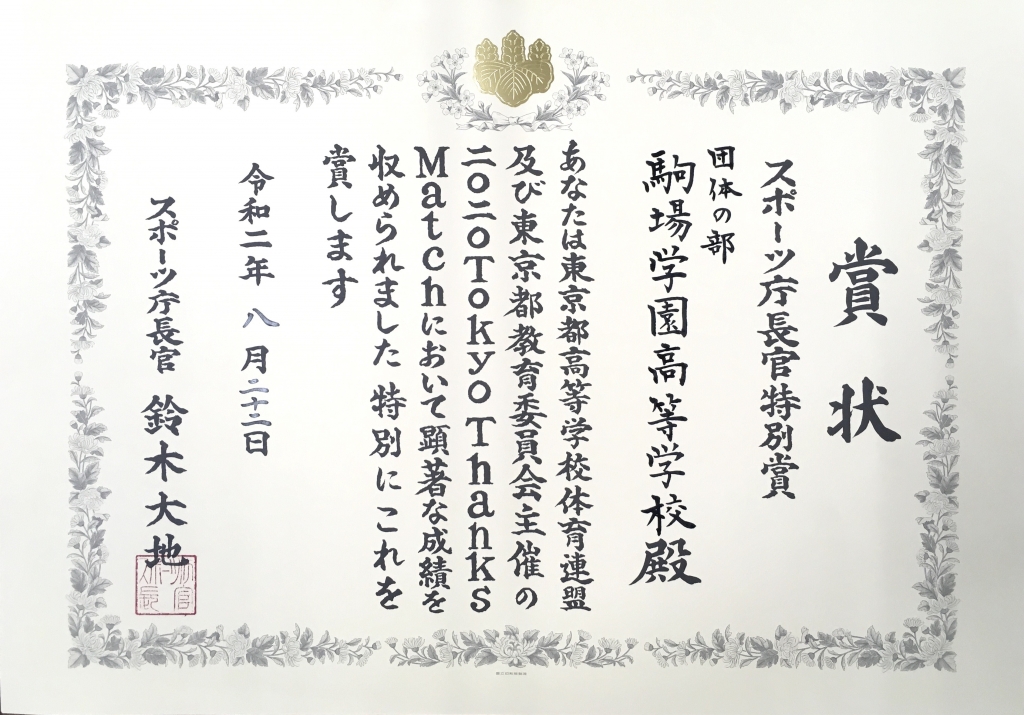 賞状
スポーツ庁長官特別賞
団体の部
駒場学園高等学校殿
あなたは東京都高等学校体育連盟
及び東京都教育委員会主催の
二〇二〇TokyoThanks
Matchにおいて顕著な成績を
収められました 特別にこれを
賞します
令和二年八月二十二日
スポーツ庁長官 鈴木大地